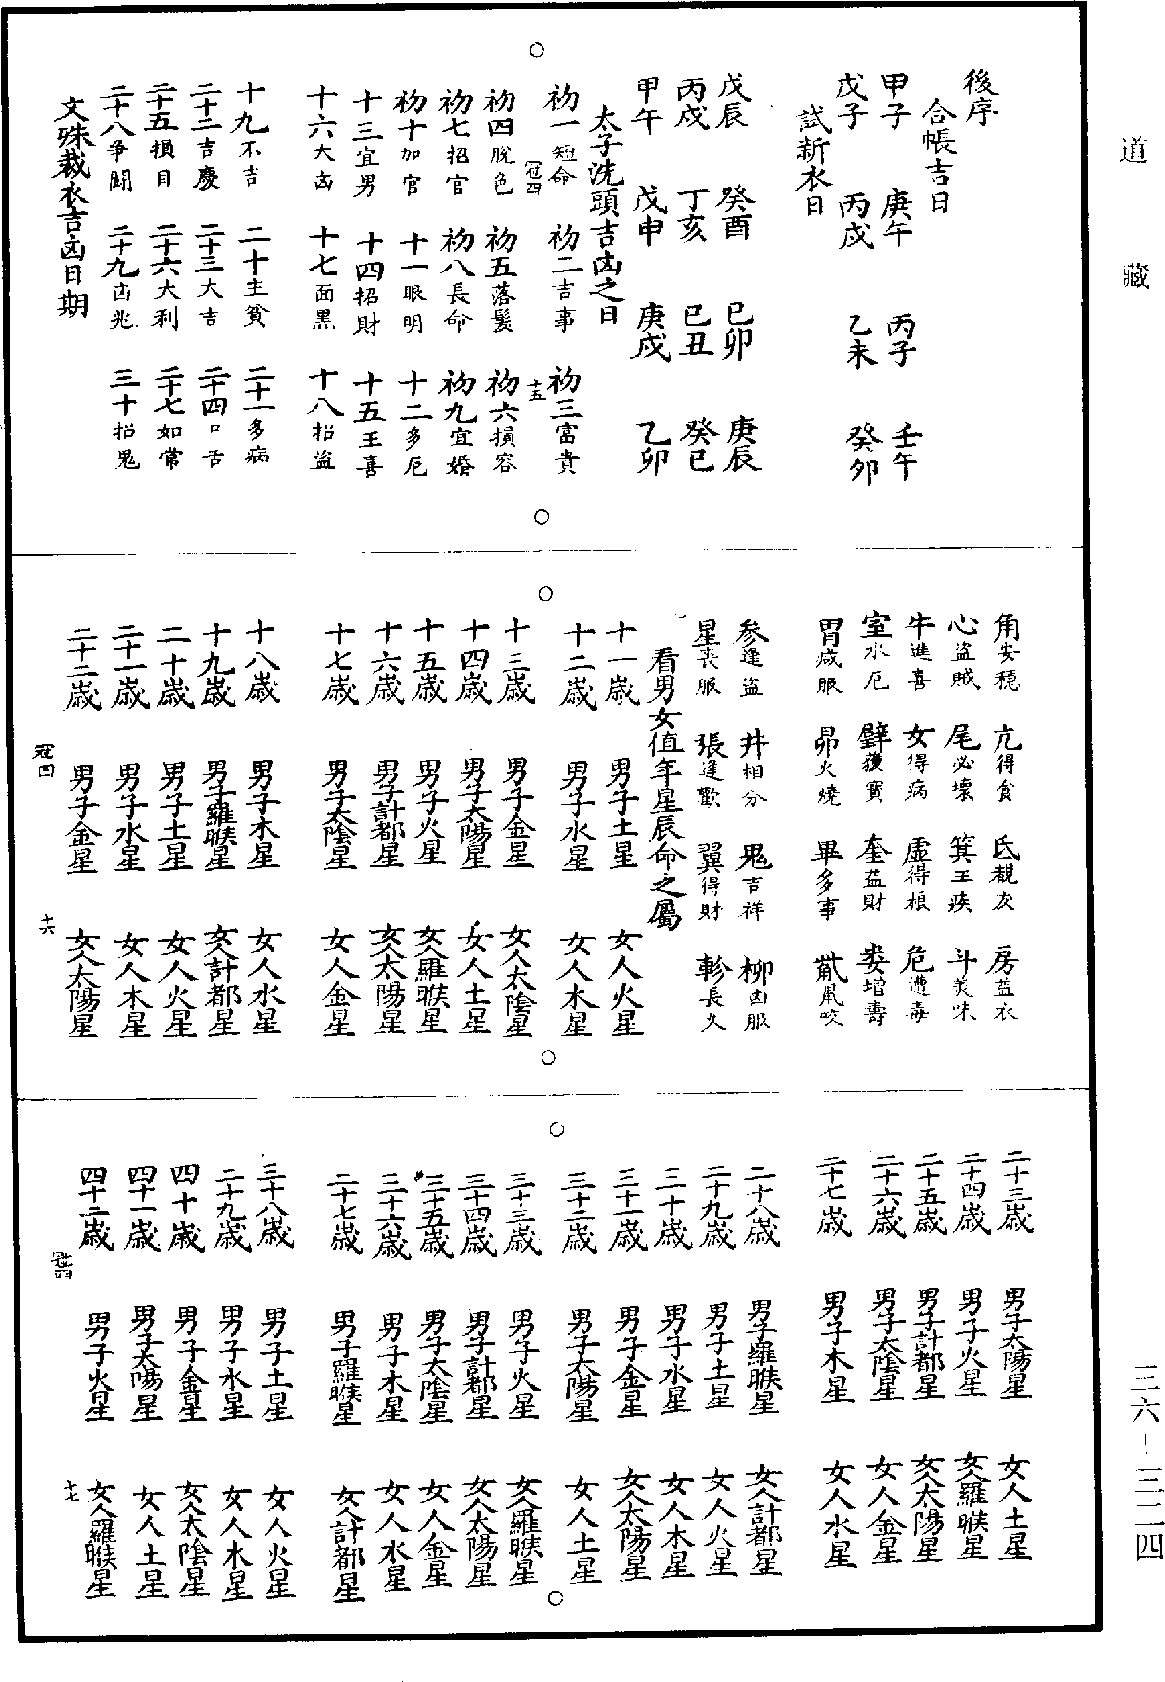 道藏
後序
合帳吉日
甲子 庚午 丙子 壬午
戊子 丙戌 乙未 癸卯
試新衣日
戊辰 癸酉 己卯 庚辰
丙戌 丁亥 己丑 癸巳
甲午 戊申 庚戌 乙卯
太子洗頭吉凶之日
初一短命 初二吉事 初三富貴
冠四 十五
初四脫色 初五落髮 初六損容
初七招官 初八長命 初九宜婚
初十加官 十一眼明 十二多厄
十三宜男 十四招財 十五王喜
十六大凶 十七面黑 十八招盜
十九不吉 二十主貧 二十一多病
二十二吉慶 二十三大吉 二十四口舌
二十五損目 二十六大利 二十七如常
二十八爭鬪 二十九凶兆 三十招鬼
文殊裁衣吉凶日期
角安穩 亢得食 氐覩灰 房益衣
心盜賊 尾必壞 箕王疾 斗美味
牛進喜 女得病 虛得粮 危遭毒
室水厄 壁獲寶 奎益財 婁增壽
胃咸服 昴火燒 畢多事 觜鼠咬
參逢盜 井相分 鬼吉祥 柳凶服
星喪服 張逢歡 翼得財 軫長久
看男女值年星辰命之屬
十一歲 男子土星 女人火星
十二歲 男子水星 女人木星
十三歲 男子金星 女人太陰星
十四歲 男子太陽星 女人土星
十五歲 男子火星 女人羅睺星
十六歲 男子計都星 女人太陽星
十七歲 男子太陰星 女人金星
十八歲 男子木星 女人水星
十九歲 男子羅睺星 女人計都星
二十歲 男子土星 女人火星
二十一歲 男子水星 女人木星
二十二歲 男子金星 女人太陽星
冠四 十六
二十三歲 男子太陽星 女人土星
二十四歲 男子火星 女人羅睺星
二十五歲 男子計都星 女人太陽星
二十六歲 男子太陰星 女人金星
二十七歲 男子木星 女人水星
二十八歲 男子羅睺星 女人計都星
二十九歲 男子土星 女人火星
三十歲 男子水星 女人木星
三十一歲 男子金星 女人太陽星
三十二歲 男子太陽星 女人土星
三十三歲 男子火星 女人羅睺星
三十四歲 男子計都星 女人太陽星
三十五歲 男子太陰星 女人金星
三十六歲 男子木星 女人水星
三十七歲 男子羅睺星 女人計都星
三十八歲 男子土星 女人火星
三十九歲 男子水星 女人木星
四十歲 男子金星 女人太陰星
四十一歲 男子太陽星 女人土星
四十二歲 男子火星 女人羅睺星
冠四 十七
三六－三二四